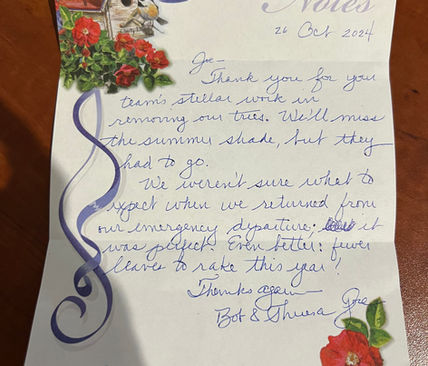 Notes
26 Oct 2024
Joe-
Thank you for you
team's stellar work in
removing our trees. We'll miss
the summer shade, but they
had to go.
We weren't sure what to
expect when we returned from
our emergency departure; it
was perfect. Even better: fewer
leaves to rake this year!
Thanks again-
Bob & Theresa